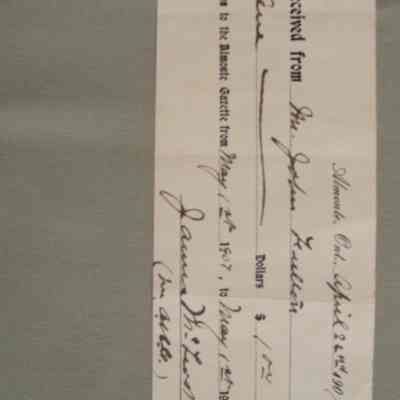 Almonte, Ont. April 22nd, 190
ceived from Mr. John Fulton
One Dollars $ 1.00
n to the Almonte Gazette from May 1st 1907, to May 1st 19
James McLeod